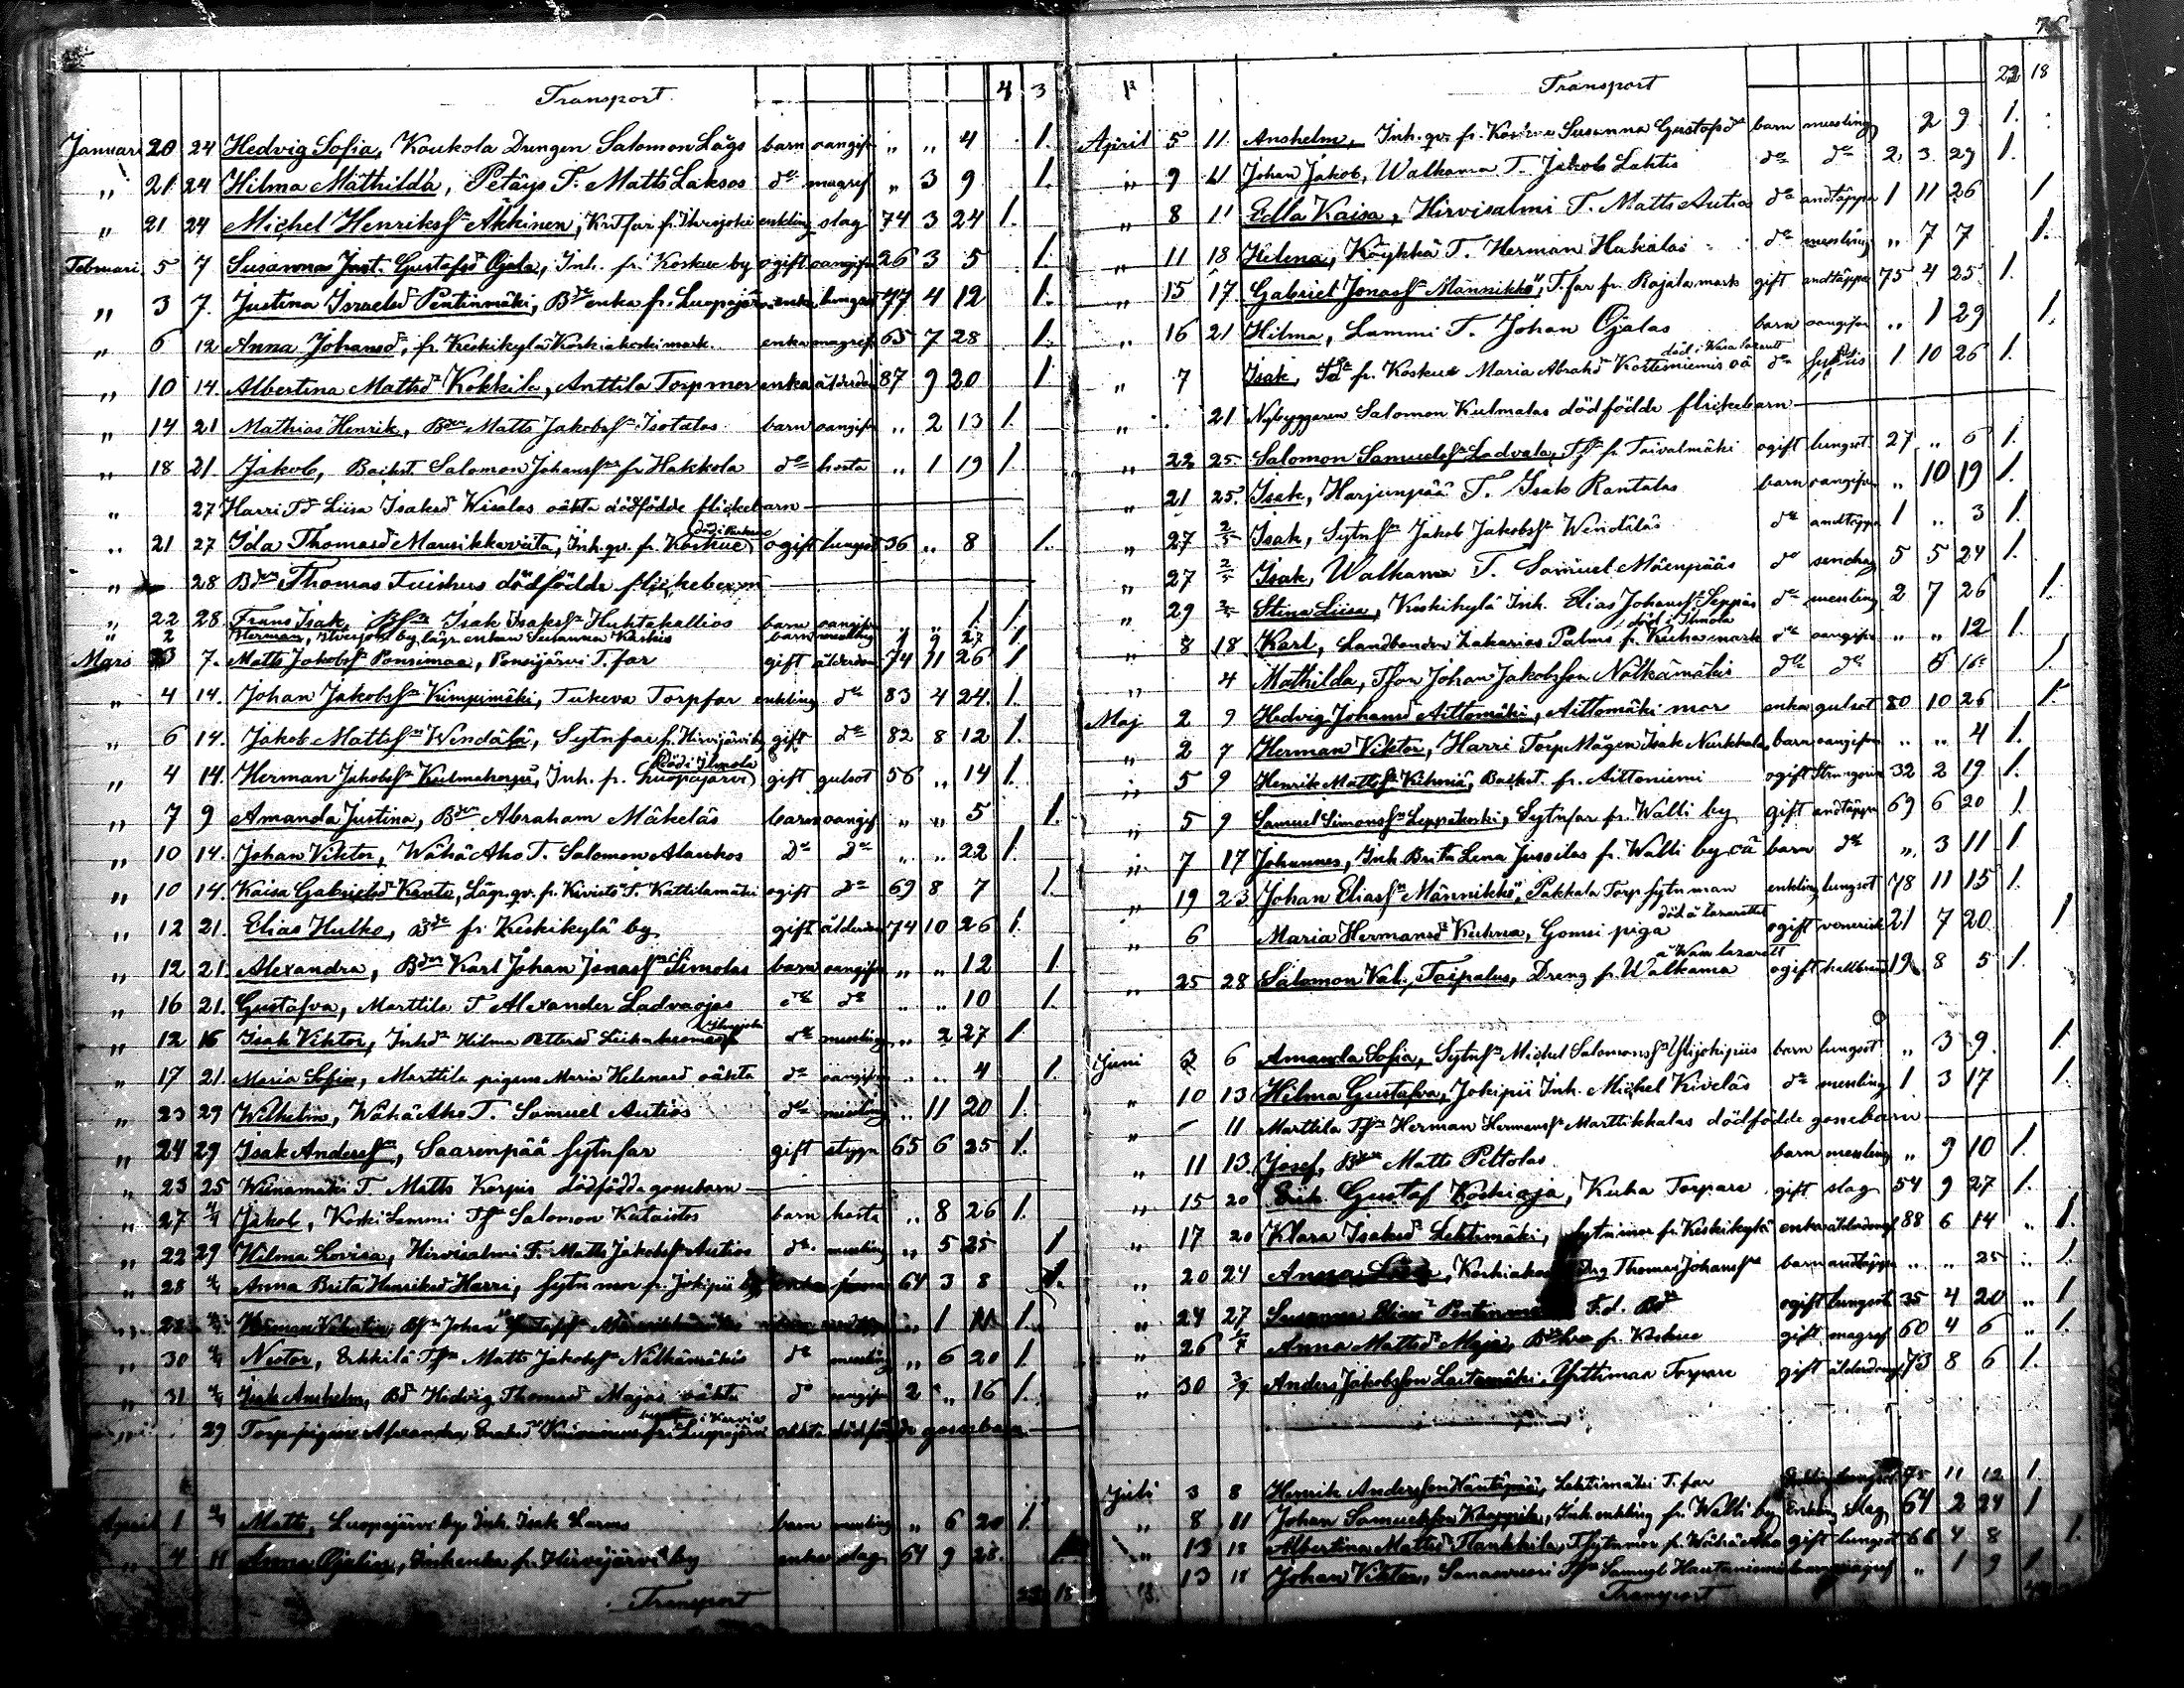 76
Transport 4 3
Januari 20 24 Hedvig Sofia, Koukola Drengen Salomon Lågs barn oangifv „ „ 4 1.
„ 21 24 Hilma Mathilda, Petäys T. Matts Laksos do magref „ 3 9 1.
„ 21 24 Michel Henrikss Äkkinen, fr. Ilvesjoki enkling slag 74 3 24 1.
Februari 5 7 Susanna Just. Gustafsd Ojala, Inh. fr. Koskue by ogift oangifv 26 3 5 1.
„ 3 7. Justina Israelsd Pentinmäki, Bde enka fr. Luopajärvi enka lungsot 77 4 12 1.
„ 6 12 Anna Johansd, fr. Keskikylä Koskiakoski mark enka magref 65 7 28 1.
„ 10 14. Albertina Mattsd Kokkila, Anttila Torpmor enka ålderdom 87 9 20 1
„ 14 21 Mathias Henrik, Bden Matts Jakobss Isotalos barn oangifv „ 2 13 1.
„ 18 21. Jakob, Backst. Salomon Johanss fr Hakkola do hosta „ 1 19 1
„ 27 Harri Td Liisa Isaksd Wisalas oäkta dödfödde flickebarn
„ 21 27 Ida Thomasd Mansikkaviita, Inh. qv. fr. Koskue ogift lungsot 36 „ 8 1.
„ 28 Bden Thomas Tuiskus dödfödde flickebarn
„ 22 28 Frans Isak, Isak Isakss Huhtakallios barn oangifv „ „ 1 1.
„ 2 Herman, Ilvesjoki by, enkan Susanna Koskis barn messling 1 9 27 1.
Mars 3 7. Matts Jakobss Ponsimaa, Ponsijärvi T. far gift ålderdom 74 11 26 1
„ 4 14. Johan Jakobss Kimpimäki, Tukeva Torpfar enkling do 83 4 24. 1.
„ 6 14. Jakob Mattss Wendälä, Sytnfar fr. Hirvijärvi by gift do 82 8 12 1.
död i Ilmola
„ 4 14. Herman Jakobss Kulmahorju, Inh. fr. Luopajärvi gift gulsot 56 „ 14 1.
„ 7 9 Amanda Justina, Bden Abraham Mäkeläs barn oangif „ „ 5 1.
„ 10 14. Johan Viktor, Wähä Aho T. Salomon Alaskos do do „ „ 22 1.
„ 10 14. Kaisa Gabrielsd Kanto, Lägr. qv. fr. Kivistö T. Kattilamäki ogift do 69 8 7 1.
„ 12 21. Elias Hulko, Bde fr. Keskikylä by gift ålderdom 74 10 26 1.
„ 12 21. Alexandra, Bden Karl Johan Jonass Simolas barn oangifv „ „ 12 1
„ 16 21. Gustafva, Marttila T. Alexander Ladvaojas do do „ „ 10 1.
„ 12 16 Isak Viktor, Inhd Hilma Pettersd do messling „ 2 27 1.
„ 17 21. Maria Sofia, Marttila pigans Maria Helenas oäkta do oangifv „ „ 4 1.
„ 23 29 Wilhelm, Wähä Aho T. Samuel Autios do messling „ 11 20 1.
„ 24 29 Isak Anderss, Saarenpää sytnfar gift styng 65 6 25 1.
„ 23 25 T. Matts Korpis dödfödda gossebarn
„ 27 4/4 Jakob, Koski Lammi Tfn Salomon Kataistos barn hosta „ 8 26 1.
„ 22 29 Hilma Lovisa, Hirvisalmi T. Matts Jakobss Autios do messling „ 5 25 1
„ 28 4/4 Anna Brita Henriksd Harri, sytn mor fr. Jokipii by enka 64 3 8 1.
„ 28 Herman Valentin, Johan „ 1 1.
„ 30 4/4 Nestor, Erkkilä Tfn Matts Jakobss Nälkämäkis do messling „ 6 20 1.
„ 31 4/4 Isak Anshelm, Bd Hedvig Thomasd Majas oäkta do oangifv 2 „ 16 1.
„ 29 Torppigan Alexandra fr. Luopajärvi oäkta dödfödde gossebarn
April 1 4/4 Matts, Luopajärvi by Inh. Isak barn messling „ 6 20 1.
„ 4 11 Anna Ojalias, Inh enka fr. Hirvijärvi by enka slag 64 9 28 1.
Transport 22 18
Transport 22 18
April 5 11. Anshelm, Inh. qv. fr. Koskue Susanna Gustafsd barn messling 2 9 1.
„ 9 11 Johan Jakob, Walkama T. Jakob Lahtis do do 2. 3. 29 1.
„ 8 11 Edla Kaisa, Hirvisalmi T. Matts Autios do andtäppa 1 11 26 1
„ 11 18 Helena, Köykkä T. Herman Hakalas do messling „ 7 7 1.
„ 15 17. Gabriel Jonass Männikkö, T. far fr. Rajala mark gift andtäppa 75 4 25 1.
„ 16 21 Hilma, Lammi T. Johan Ojalas barn oangifven „ 1 29 1.
död i Wasa Lazarett
„ 7 Isak, fr. Koskue Maria Abrahd Kortesniemis oä do 1 10 26 1.
„ 21 Nybyggaren Salomon Kulmalas dödfödde flickebarn
„ 22 25 Salomon Samuelss Ladvala, Tfn fr. Taivalmäki ogift lungsot 27 „ 6 1.
„ 21 25. Isak, Harjunpää T. Isak Rantalas barn oangifv „ 10 19 1.
„ 27 2/5 Isak, Sytnfn Jakob Jakobss Wendäläs do andtäppa 1 „ 3 1.
„ 27 2/5 Isak, Walkama T. Samuel Mäenpääs do 5 5 24 1.
„ 29 2/5 Stina Liisa, Keskikylä Inh. Elias Johanss Seppäs do messling 2 7 26 1.
död i Ilmola
„ 8 18 Karl, Landbonden Zakarias Palms fr. Kuha mark do oangifv „ „ 12 1.
„ 4 Mathilda, Tfon Johan Jakobsson Nälkämäkis do do 16 1.
Maj 2 9 Hedvig Johansd Aittomäki, Aittomäki mor enka gulsot 80 10 26 1.
„ 2 7 Herman Viktor, Harri Torp Mågen Isak Nurkkala barn oangifven „ „ 4 1.
„ 5 9 Henrik Mattss Kihniä, Backst. fr. Aittoniemi ogift 32 2 19 1.
„ 5 9 Samuel Simonss Leppäkoski, Sytnfar fr. Walli by gift andtäppa 69 6 20 1.
„ 7 17 Johannes, Inh. Brita Lena Jussilas fr. Walli by oä barn do „ 3 11 1
„ 19 23 Johan Eliass Männikkö, Pakkala Torp sytnman enkling lungsot 78 11 15 1.
död å Lazarettet
„ 6 Maria Hermansd Kuhna, Gomsi piga ogift venerisk 21 7 20. 1
å Wasa lazarett
„ 25 28 Salomon Taipalus, Dreng fr. Walkama ogift kallbrand 19 8 5 1.
Juni 3 6 Amanda Sofia, Sytnfn Michel Salomonss Ylijokipiis barn lungsot „ 3 9. 1.
„ 10 13 Hilma Gustafva, Jokipii Inh. Michel Kiveläs do messling 1 3 17 1.
„ – 11 Marttila Tfn Herman Hermanss Marttikkalas dödfödde gossebarn
„ 11 13. Josef, Bden Matts Peltolas barn messling „ 9 10 1.
„ 15 20 Erik Gustaf Koskiaja, Kuha Torpare gift slag 54 9 27 1.
„ 17 20 Klara Isaksd Lehtimäki, sytn mor fr. Keskikylä enka ålderdom 88 6 14 „ 1.
„ 20 24 Anna Thomas Johanss barn andtäppa „ „ 25 „ 1.
„ 24 27 Susanna ogift lungsot 35 4 20 „ 1
„ 26 Anna Mattsd Maja, fr. Koskue gift magref 60 4 6 „ 1.
„ 30 3/7 Anders Jakobsson Laitamäki, Yrttimaa Torpare gift ålderdom 73 8 6 1.
Juli 3 8 Henrik Andersson Häntäpää, Lehtimäki T. far lungsot 75 11 12 1.
„ 8 11 Johan Samuelsson Knuppila, Inh. enkling fr. Walli by Enkling slag 64 2 24 1
„ 13 18 Albertina Mattsd Hankkila, T. Sytnmor fr. Wähä Aho gift lungsot 66 4 8 1.
„ 13 18 Johan Viktor, Sanasvuori Tfn Samuel Hautaniemis barn magref „ 1 9 1
Transport